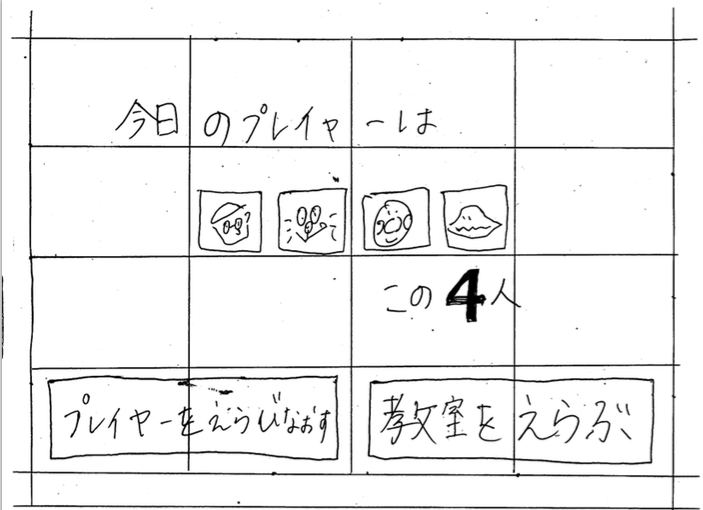 今日のプレイヤーは
この4人
プレイヤーをえらびなおす
教室をえらぶ